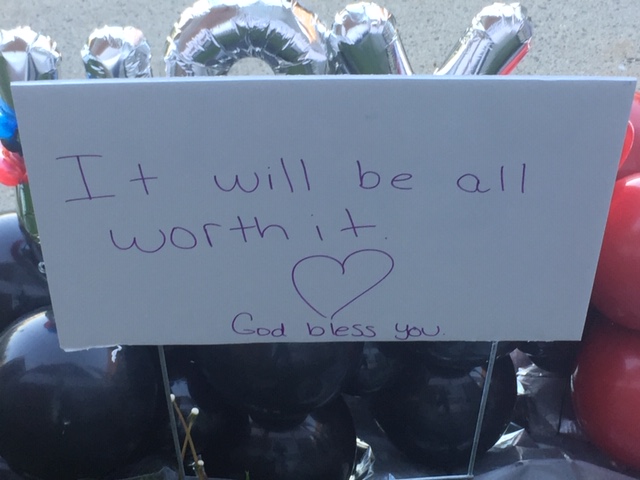 It will be all
worth it.
God bless you.